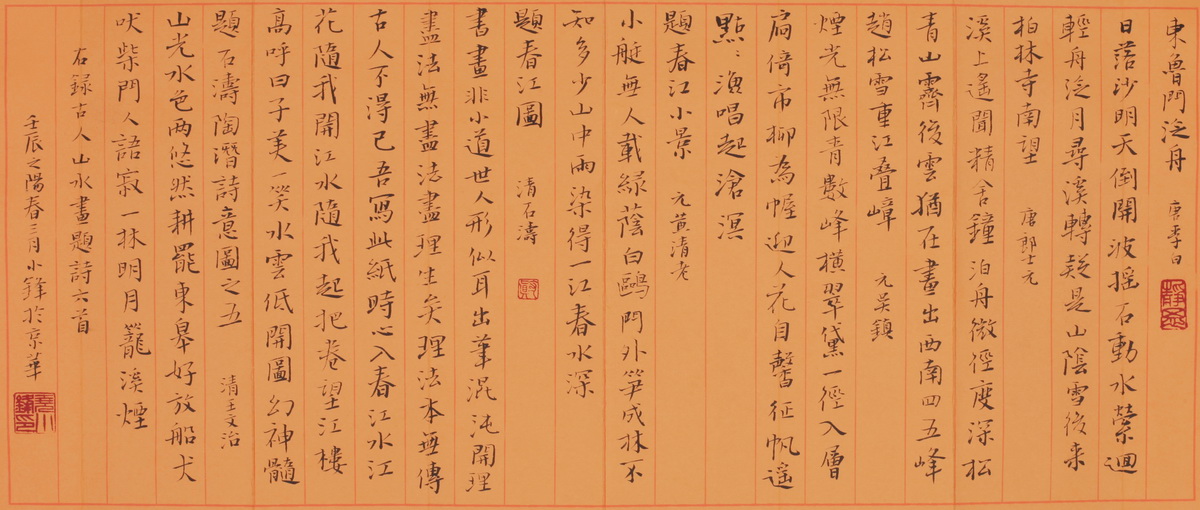 東魯門泛舟 唐李白
日落沙明天倒開波搖石動水縈迴
輕舟泛月尋溪轉疑是山陰雪後来
柏林寺南望 唐郎士元
溪上遙聞精舍鐘泊舟微徑度深松
青山霽後雲猶在畫出西南四五峰
趙松雪重江叠嶂 元吳鎮
煙光無限青數峰橫翠黛一徑入層
扃倚市柳為幄迎人花自馨征帆遙
點〻漁唱起滄溟
題春江小景 元黃清老
小艇無人載綠蔭白鷗門外笋成林不
知多少山中雨染得一江春水深
題春江圖 清石濤
書畫非小道世人形似耳出筆混沌開理
盡法無盡法盡理生矣理法本無傳
古人不得已吾寫此紙時心入春江水江
花隨我開江水隨我起把卷望江樓
高呼曰子美一笑水雲低開圖幻神髓
題石濤陶潛詩意圖之五 清王文治
山光水色两悠然耕罷東皋好放船犬
吠柴門人語寂一林明月籠溪煙
右錄古人山水畫題詩六首
壬辰之陽春三月小鋒於京華